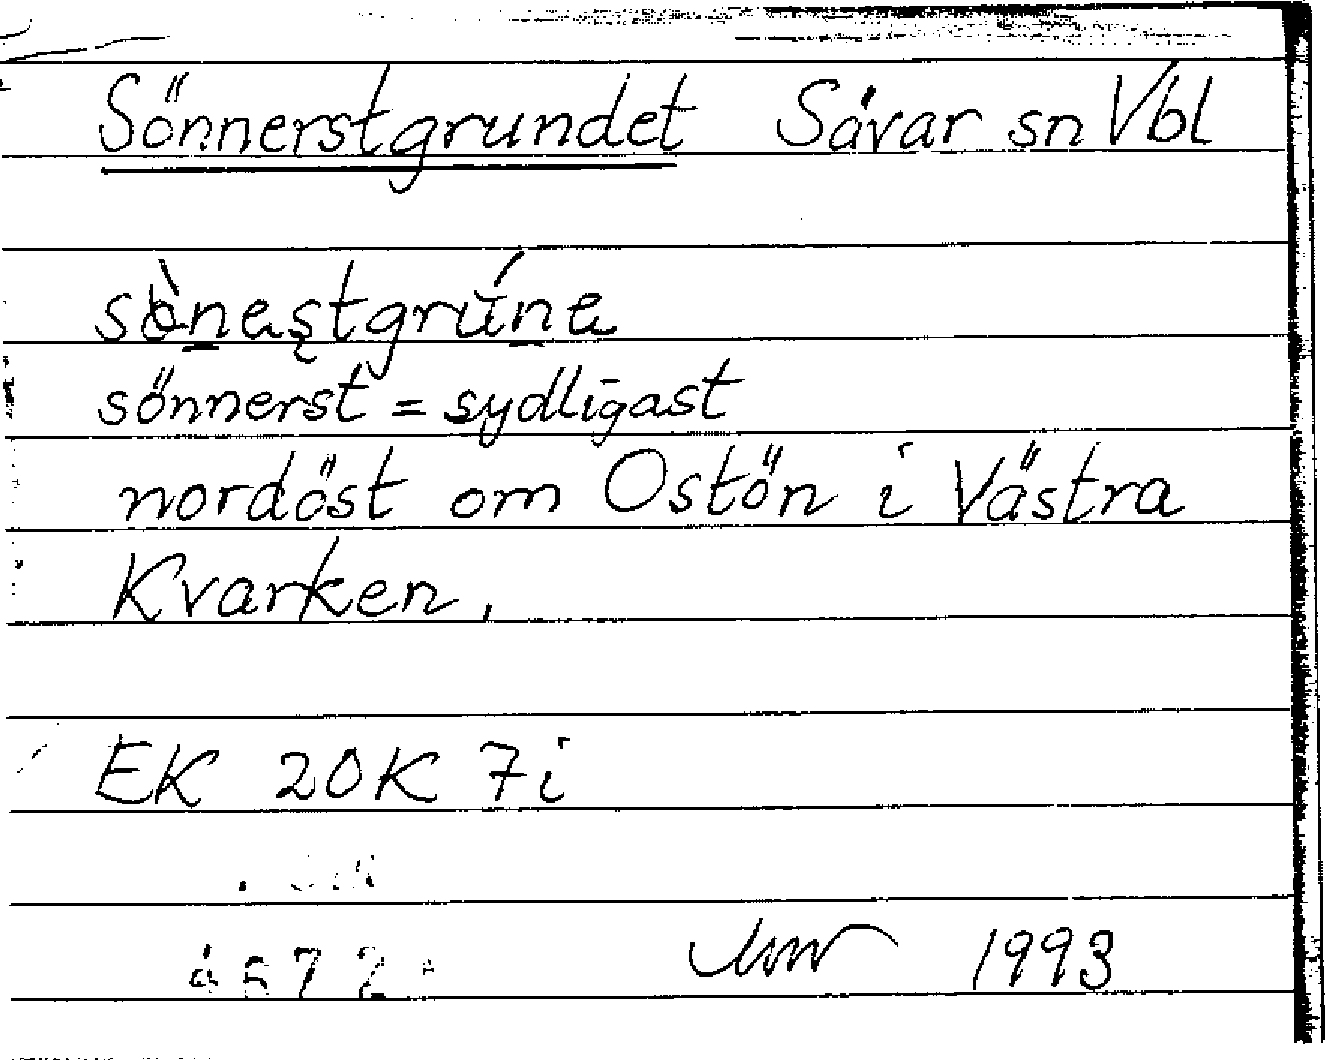 Sönnerstgrundet Sävar sn Vbl
sönnerst = sydligast
nordöst om Ostön i Västra
Kvarken.
EK 20K 7i
1993